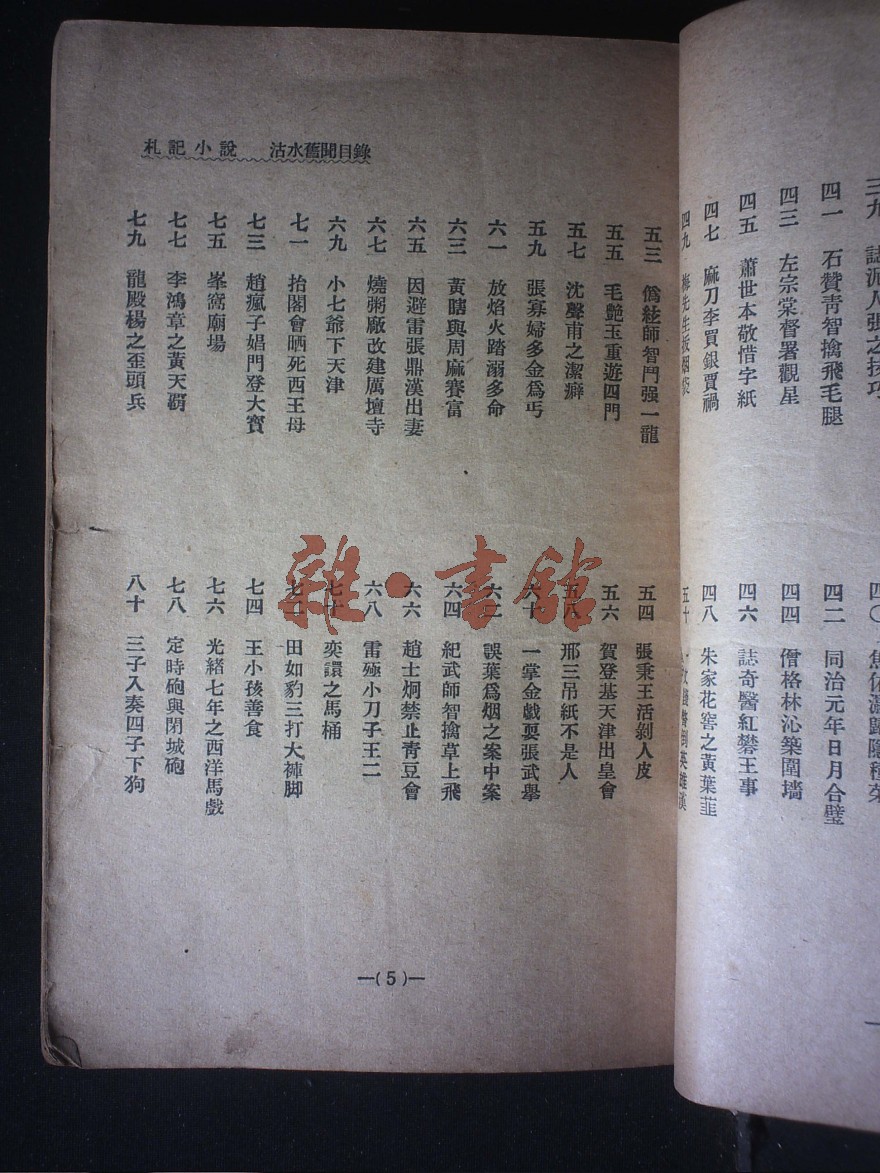 札記小說　沽水舊聞目錄
三九　誌派人張之技巧
四一　石贊青智擒飛毛腿
四三　左宗棠督署觀星
四五　蕭世本敬惜字紙
四七　麻刀李買銀賈禍
四九　梅先生扳烟袋
四〇　焦佑瀛歸隱種菜
四二　同治元年日月合璧
四四　僧格林沁築圍墻
四六　誌奇醫紅礬王事
四八　朱家花窖之黃葉韮
五十　倒英雄漢
五三　僞紝師智鬥强一龍
五五　毛艷玉重遊四門
五七　沈聲甫之潔癖
五九　張寡婦多金爲丐
六一　放焰火踏溺多命
六三　黃瞎與周麻賽富
六五　因避雷張鼎漢出妻
六七　燒粥廠改建厲壇寺
六九　小七爺下天津
七一　抬閣會晒死西王母
七三　趙瘋子娼門登大寶
七五　峯窩廟塲
七七　李鴻章之黃天覇
七九　龍殿楊之歪頭兵
五四　張秉王活剝人皮
五六　賀登基天津出皇會
五八　邢三吊紙不是人
六十　一掌金戲耍張武擧
六二　誤葉爲烟之案中案
六四　紀武師智擒草上飛
六六　趙士炯禁止靑豆會
六八　雷殛小刀子王二
七十　奕譞之馬桶
七二　田如豹三打大褲脚
七四　王小孩善食
七六　光緒七年之西洋馬戲
七八　定時砲與閉城砲
八十　三子入奏四子下狗
—(5)—
雜·書館